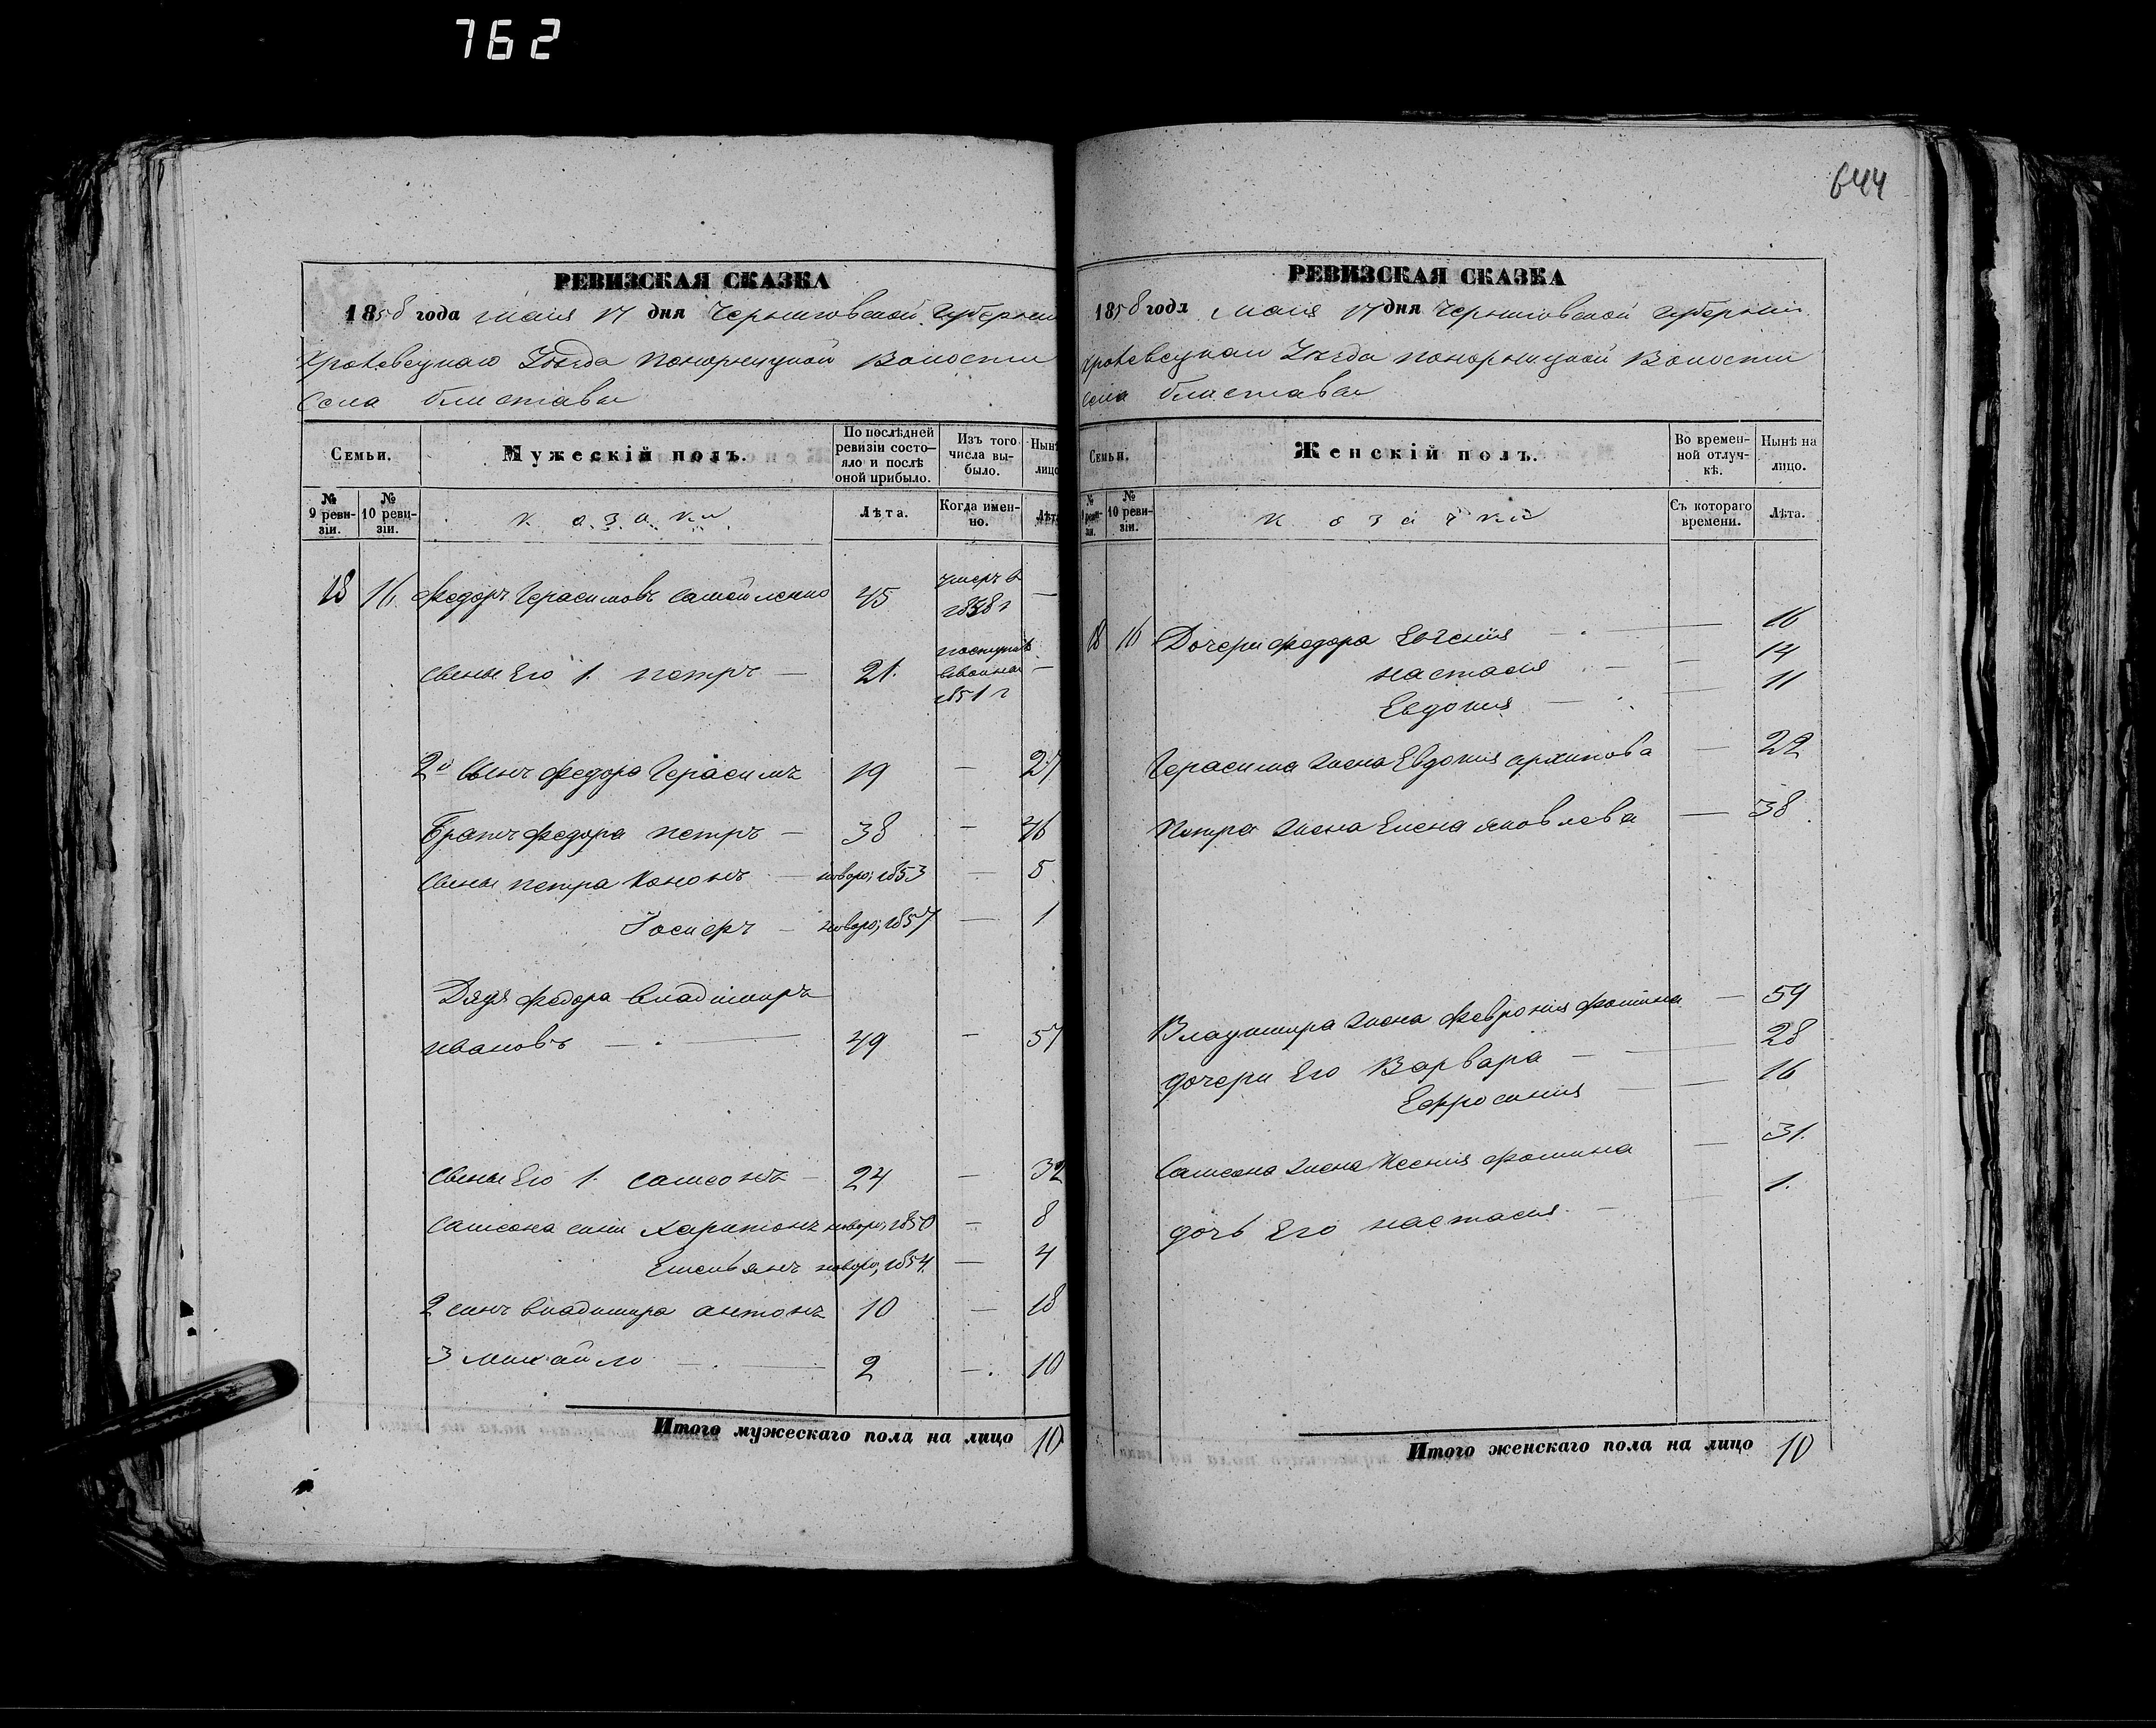 762
644
РЕВИЗСКАЯ СКАЗКА
1858 года маия 17 дня Черниговской Губернии
Кролевецкаго Уезда Понорницкой Волости
Села блиставы
Семьи.
Мужескій полъ.
По послѣдней ревизіи состо-
яло и послѣ
оной прибыло.
Изъ того
числа вы-
было.
Нынѣ
лицо
№ 9 реви-
зіи.
№ 10 реви-
зіи.
козаки
Лѣта.
Когда имен-
но.
Лѣта
18 16 Федоръ Герасимовъ Самойленко 45 умеръ в 1858 г —
Сыны Его 1. петръ — 21. 1851 г —
2й Сынъ Федора Герасимъ 19 — 27
Братъ Федора петръ — 38 — 46
Сыны петра Кононъ — новоро; 1853 — 5
— новоро; 1857 — 1
Дядя Федора владимиръ
ивановъ — 49 — 57
Сыны Его 1. самсонъ — 24 — 32
Самсона сыни Харитонъ новоро; 1850 — 8
Емельянъ новоро; 1854. — 4
2 синъ владимира антонъ 10 — 18
3 михайло — 2 — 10
Итого мужескаго пола на лицо 10
РЕВИЗСКАЯ СКАЗКА
1858 года маия 17 дня Черниговской Губернии
Кролевецкаго Уезда понорницкой Волости
Села блиставы
Семьи.
Женскій полъ.
Во времен-
ной отлуч-
кѣ.
Нынѣ на
лицо.
№ 9 реви-
зіи.
№ 10 реви-
зіи.
козачки
Съ котораго
времени.
Лѣта.
18 16 Дочери Федора Евгения — 16
настасия — 14
Евдокия — 11
Герасима жена Евдокия архипова — 22
Петра жена Елена яковлева — 38
Владимира жена Феврония фотина — 59
дочери Его Варвара — 28
Ефросиния — 16
Самсона жена Ксения фомина — 31.
дочь Его настасия — 1.
Итого женскаго пола на лицо 10